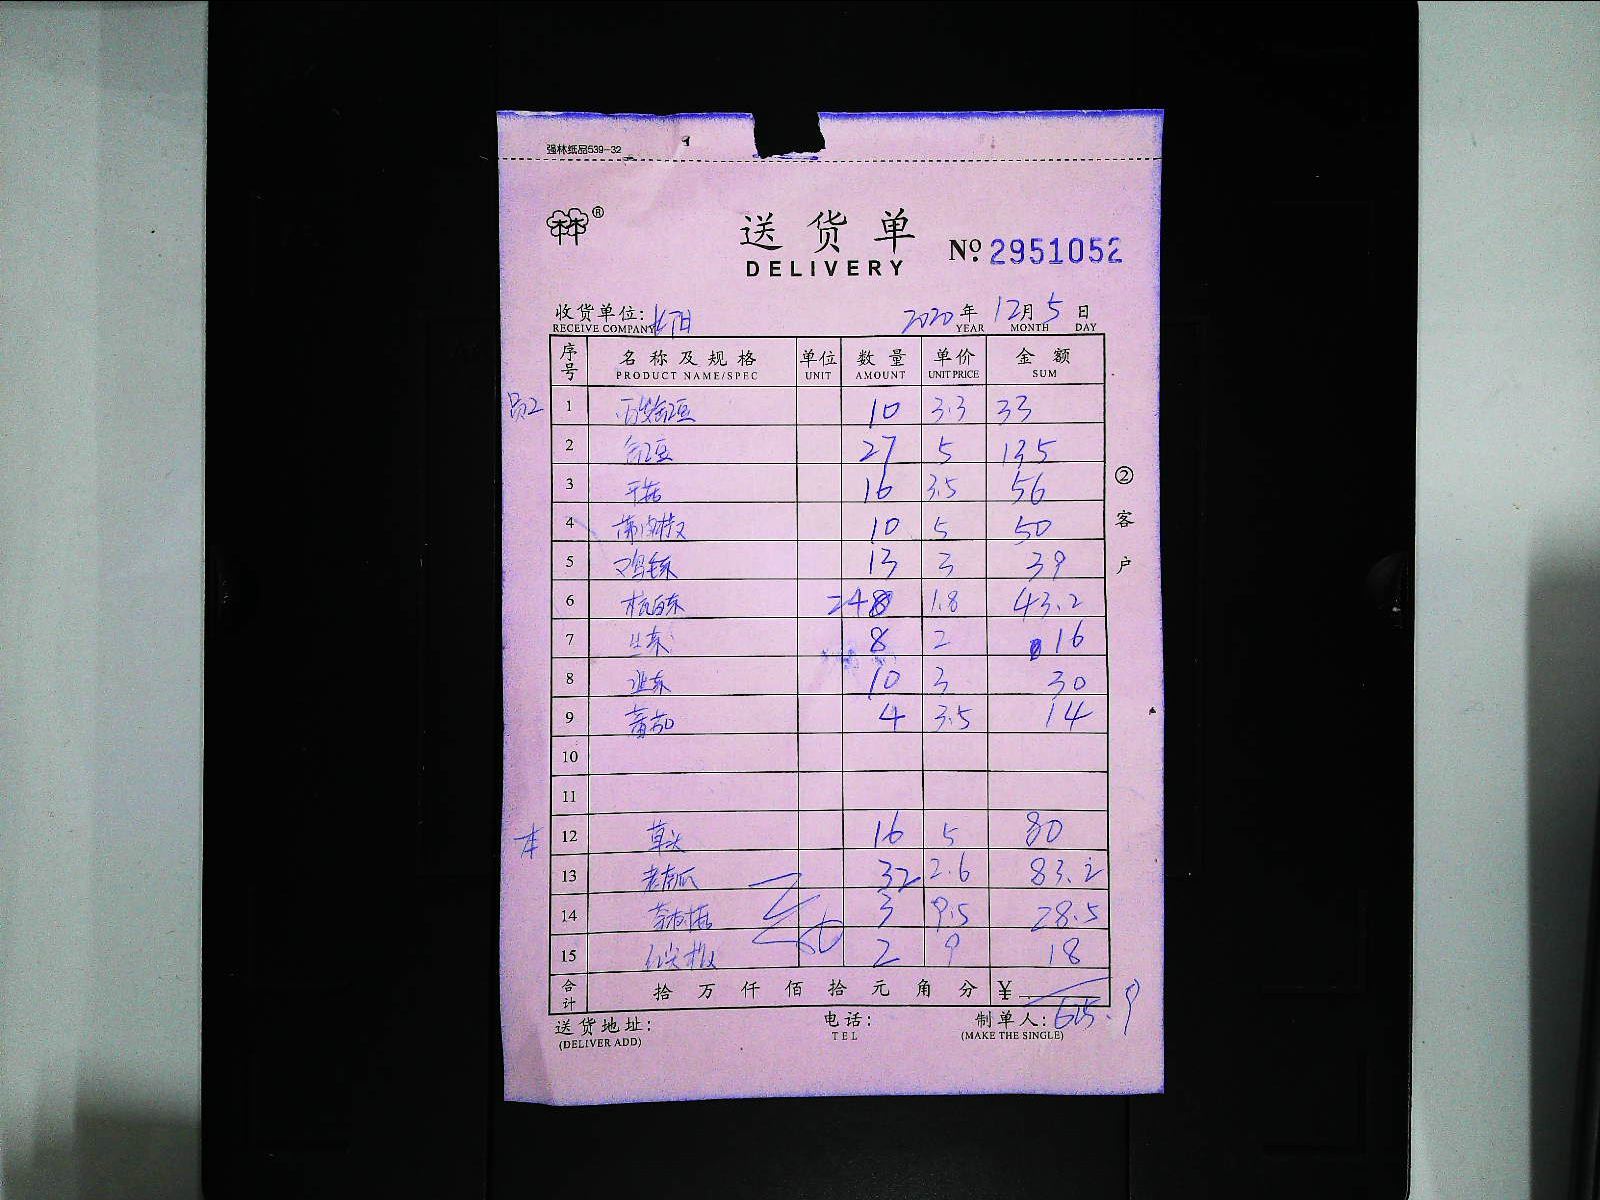 强林纸品539-32
林®
送货单
DELIVERY
No. 2951052
收货单位: 2020年12月5日
RECEIVE COMPANY YEAR MONTH DAY
序号 名称及规格 单位 数量 单价 金额
PRODUCT NAME/SPEC UNIT AMOUNT UNIT PRICE SUM
员工 1 豆 10 3.3 33
2 豆 27 5 135
3 平菇 16 3.5 56
4 10 5 50
5 鸡毛菜 13 3 39
6 杭白菜 24 1.8 43.2
7 生菜 8 2 16
8 10 3 30
9 番茄 4 3.5 14
10
11
本 12 草头 16 5 80
13 老南瓜 32 2.6 83.2
14 茶树菇 3 9.5 28.5
15 红尖椒 2 9 18
合计 拾万仟佰拾元角分 ¥ 625.9
送货地址: 电话: 制单人:
(DELIVER ADD) TEL (MAKE THE SINGLE)
②客户